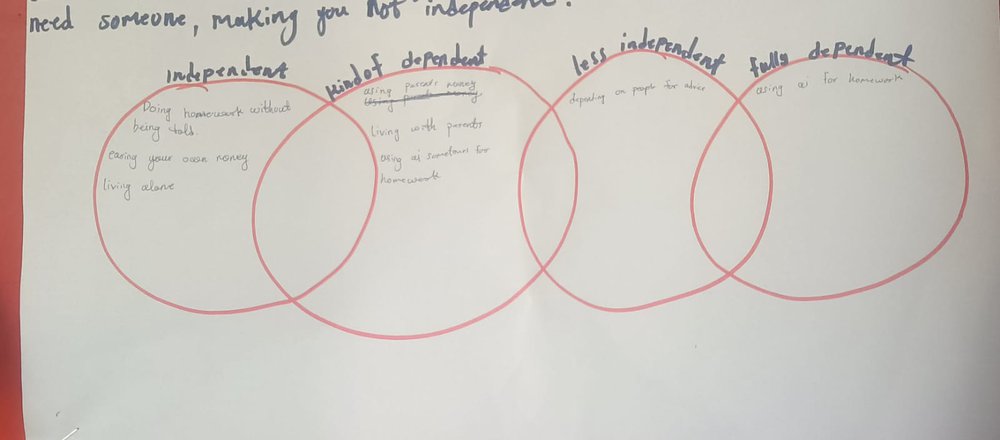 need someone, making you not independent.
independent
Doing homework without
being told.
earing your own money
living alone
kindof dependent
using parents money
using parents money
living with parents
using ai sometimes for
homework
less independent
depending on people for advice
fully dependent
using ai for homework